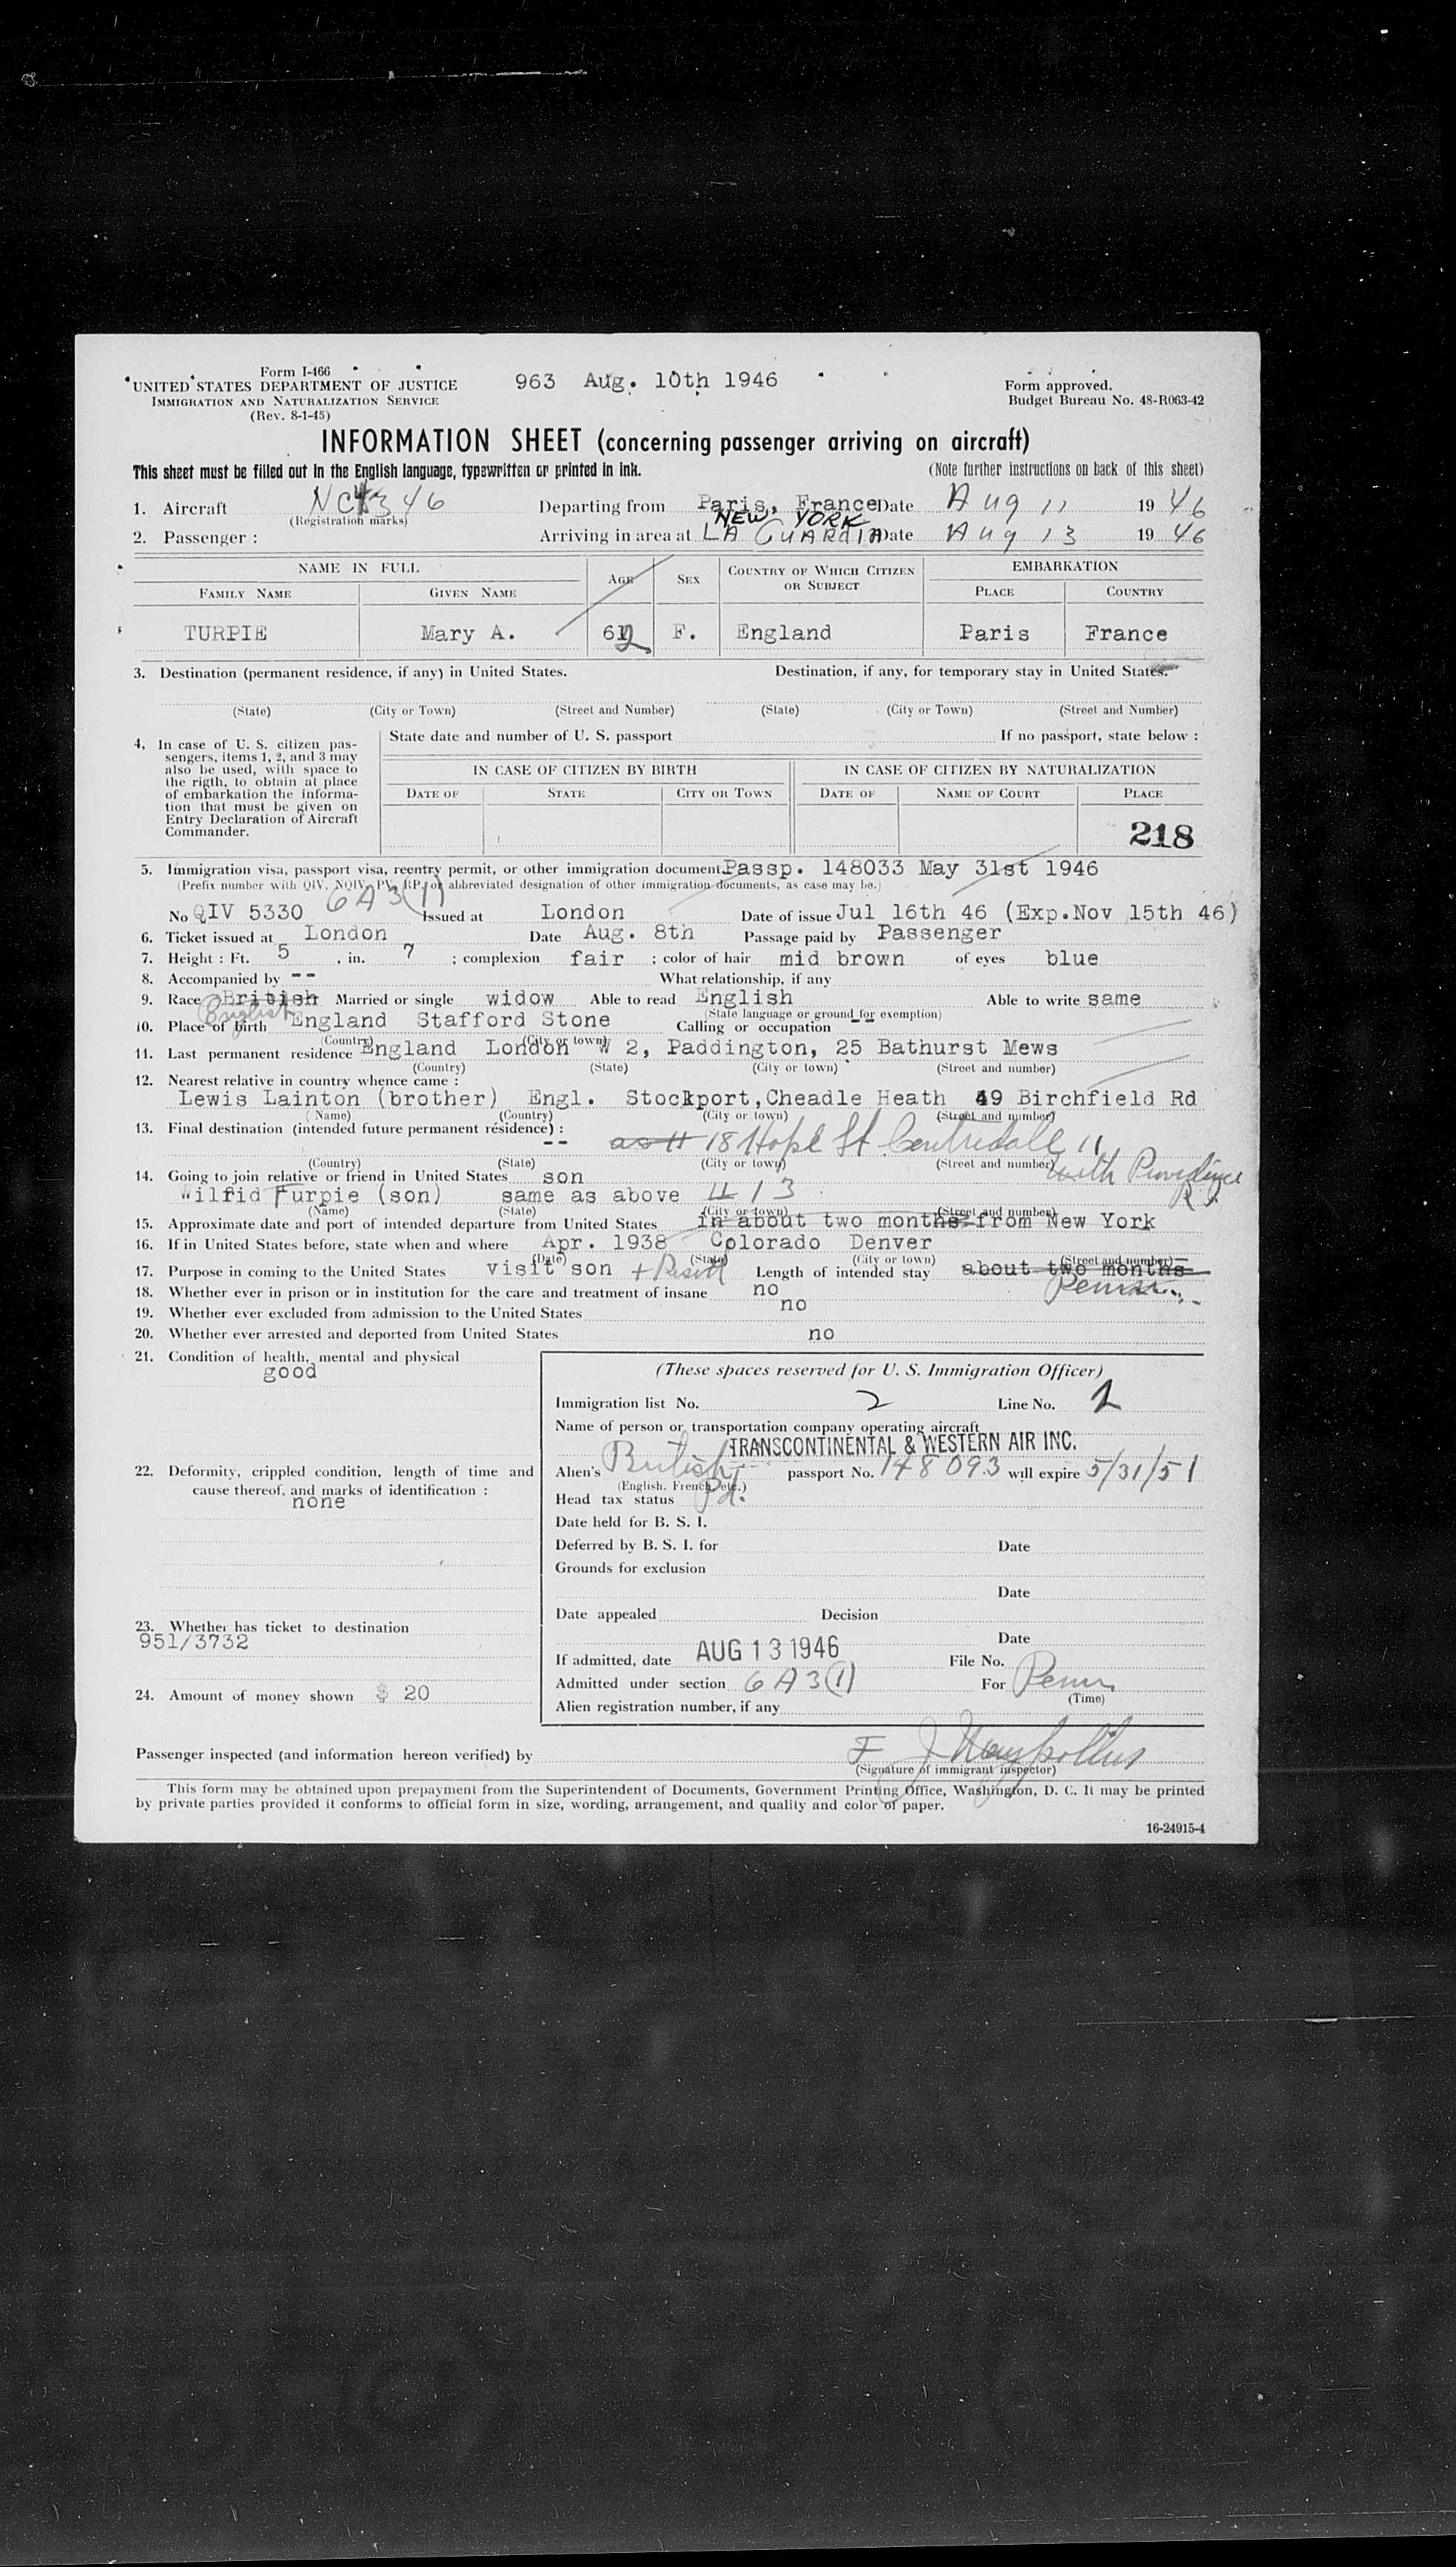 Form I-466
UNITED STATES DEPARTMENT OF JUSTICE
IMMIGRATION AND NATURALIZATION SERVICE
(Rev. 8-1-45)
963 Aug. 10th 1946
Form approved.
Budget Bureau No. 48-R063-42
INFORMATION SHEET (concerning passenger arriving on aircraft)
This sheet must be filled out in the English language, typewritten or printed in ink. (Note further instructions on back of this sheet)
1. Aircraft Departing from Paris, France Date Aug 11 1946
(Registration marks)
NEW YORK
2. Passenger : Arriving in area at LA GUARDIA Date Aug 13 1946
NAME IN FULL AGE SEX COUNTRY OF WHICH CITIZEN OR SUBJECT EMBARKATION
FAMILY NAME GIVEN NAME PLACE COUNTRY
TURPIE Mary A. 62 F. England Paris France
3. Destination (permanent residence, if any) in United States. Destination, if any, for temporary stay in United States.
(State) (City or Town) (Street and Number) (State) (City or Town) (Street and Number)
4. In case of U. S. citizen pas-
sengers, items 1, 2, and 3 may
also be used, with space to
the rigth, to obtain at place
of embarkation the informa-
tion that must be given on
Entry Declaration of Aircraft
Commander.
State date and number of U. S. passport If no passport, state below :
IN CASE OF CITIZEN BY BIRTH IN CASE OF CITIZEN BY NATURALIZATION
DATE OF STATE CITY OR TOWN DATE OF NAME OF COURT PLACE
218
5. Immigration visa, passport visa, reentry permit, or other immigration document. Passp. 148033 May 31st 1946
(Prefix number with QIV, NQIV, PV, RP, or abbreviated designation of other immigration documents, as case may be.)
6A3(1)
No QIV 5330 Issued at London Date of issue Jul 16th 46 (Exp.Nov 15th 46)
6. Ticket issued at London Date Aug. 8th Passage paid by Passenger
7. Height : Ft. 5 , in. 7 ; complexion fair ; color of hair mid brown of eyes blue
8. Accompanied by -- What relationship, if any
9. Race British Married or single widow Able to read English Able to write same
English (State language or ground for exemption)
10. Place of birth England Stafford Stone Calling or occupation --
(Country) (City or town)
11. Last permanent residence England London W 2, Paddington, 25 Bathurst Mews
(Country) (State) (City or town) (Street and number)
12. Nearest relative in country whence came :
Lewis Lainton (brother) Engl. Stockport, Cheadle Heath 49 Birchfield Rd
(Name) (Country) (City or town) (Street and number)
13. Final destination (intended future permanent résidence) :
-- 18 Hope St Centredale
(Country) (State) (City or town) (Street and number)
North Providence
R I
14. Going to join relative or friend in United States son
Wilfid Turpie (son) same as above # 13
(Name) (State) (City or town) (Street and number)
15. Approximate date and port of intended departure from United States in about two months from New York
16. If in United States before, state when and where Apr. 1938 Colorado Denver
(Date) (State) (City or town) (Street and number)
17. Purpose in coming to the United States visit son Length of intended stay about two months
18. Whether ever in prison or in institution for the care and treatment of insane no
19. Whether ever excluded from admission to the United States no
20. Whether ever arrested and deported from United States no
21. Condition of health, mental and physical
good
22. Deformity, crippled condition, length of time and
cause thereof, and marks of identification :
none
23. Whether has ticket to destination
951/3732
24. Amount of money shown $ 20
(These spaces reserved for U. S. Immigration Officer)
Immigration list No. 2 Line No. 1
Name of person or transportation company operating aircraft
TRANSCONTINENTAL & WESTERN AIR INC.
Alien's British passport No. 148093 will expire 5/31/51
(English, French, etc.)
Head tax status Pd.
Date held for B. S. I.
Deferred by B. S. I. for Date
Grounds for exclusion
Date
Date appealed Decision
Date
If admitted, date AUG 13 1946 File No.
Admitted under section 6A3(1) For Perm
(Time)
Alien registration number, if any
Passenger inspected (and information hereon verified) by
(Signature of immigrant inspector)
This form may be obtained upon prepayment from the Superintendent of Documents, Government Printing Office, Washington, D. C. It may be printed
by private parties provided it conforms to official form in size, wording, arrangement, and quality and color of paper.
16-24915-4